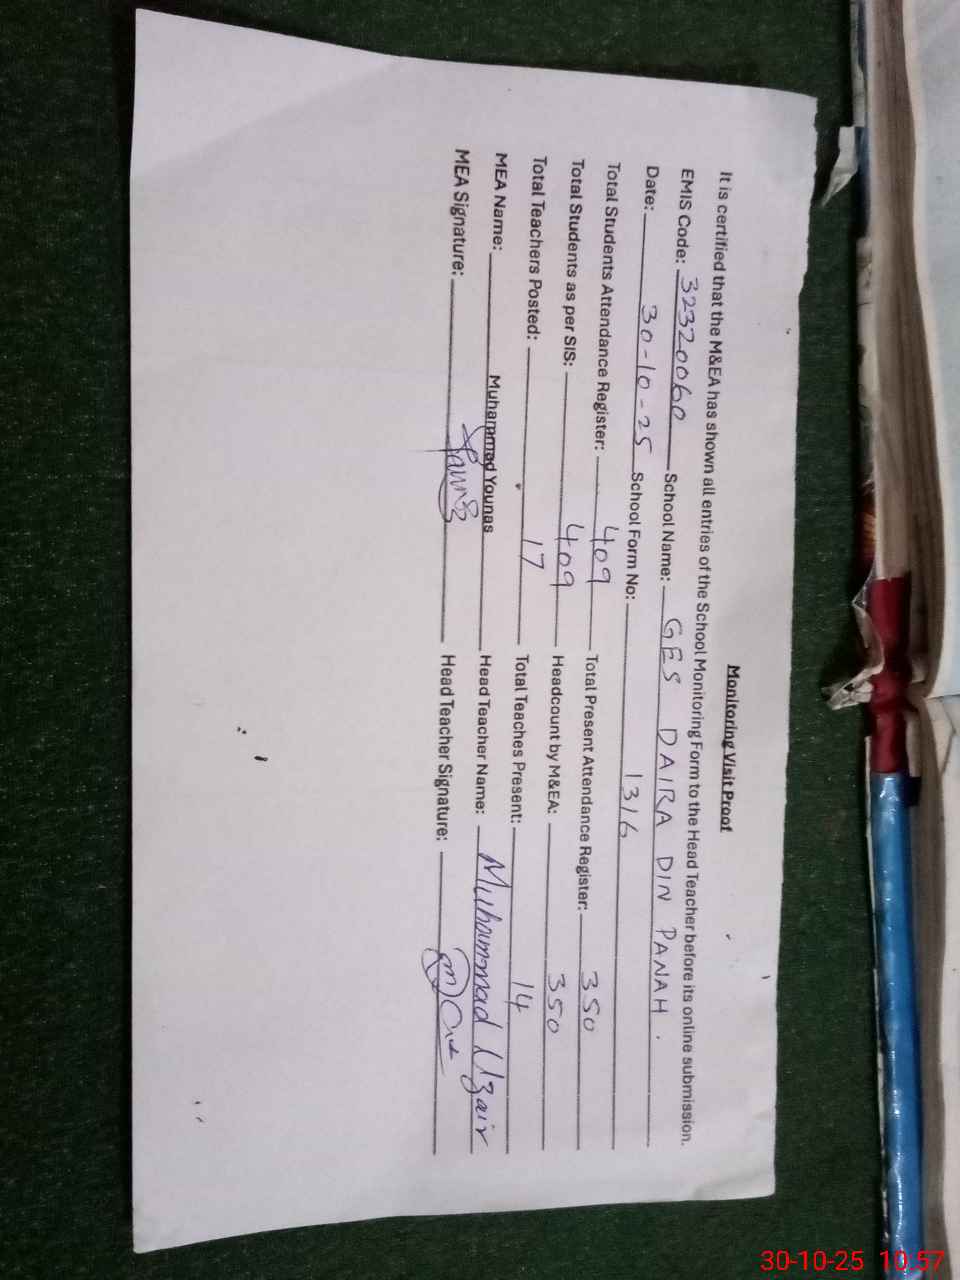 Monitoring Visit Proof
It is certified that the M&EA has shown all entries of the School Monitoring Form to the Head Teacher before its online submission.
EMIS Code: 32320060 School Name: GES DAIRA DIN PANAH.
Date: 30-10-25 School Form No: 1316
Total Students Attendance Register: 409 Total Present Attendance Register: 350
Total Students as per SIS: 409 Headcount by M&EA: 350
Total Teachers Posted: 17 Total Teaches Present: 14
MEA Name: Muhammad Younas Head Teacher Name: Muhammad Uzair
MEA Signature: Head Teacher Signature:
30-10-25 10:57